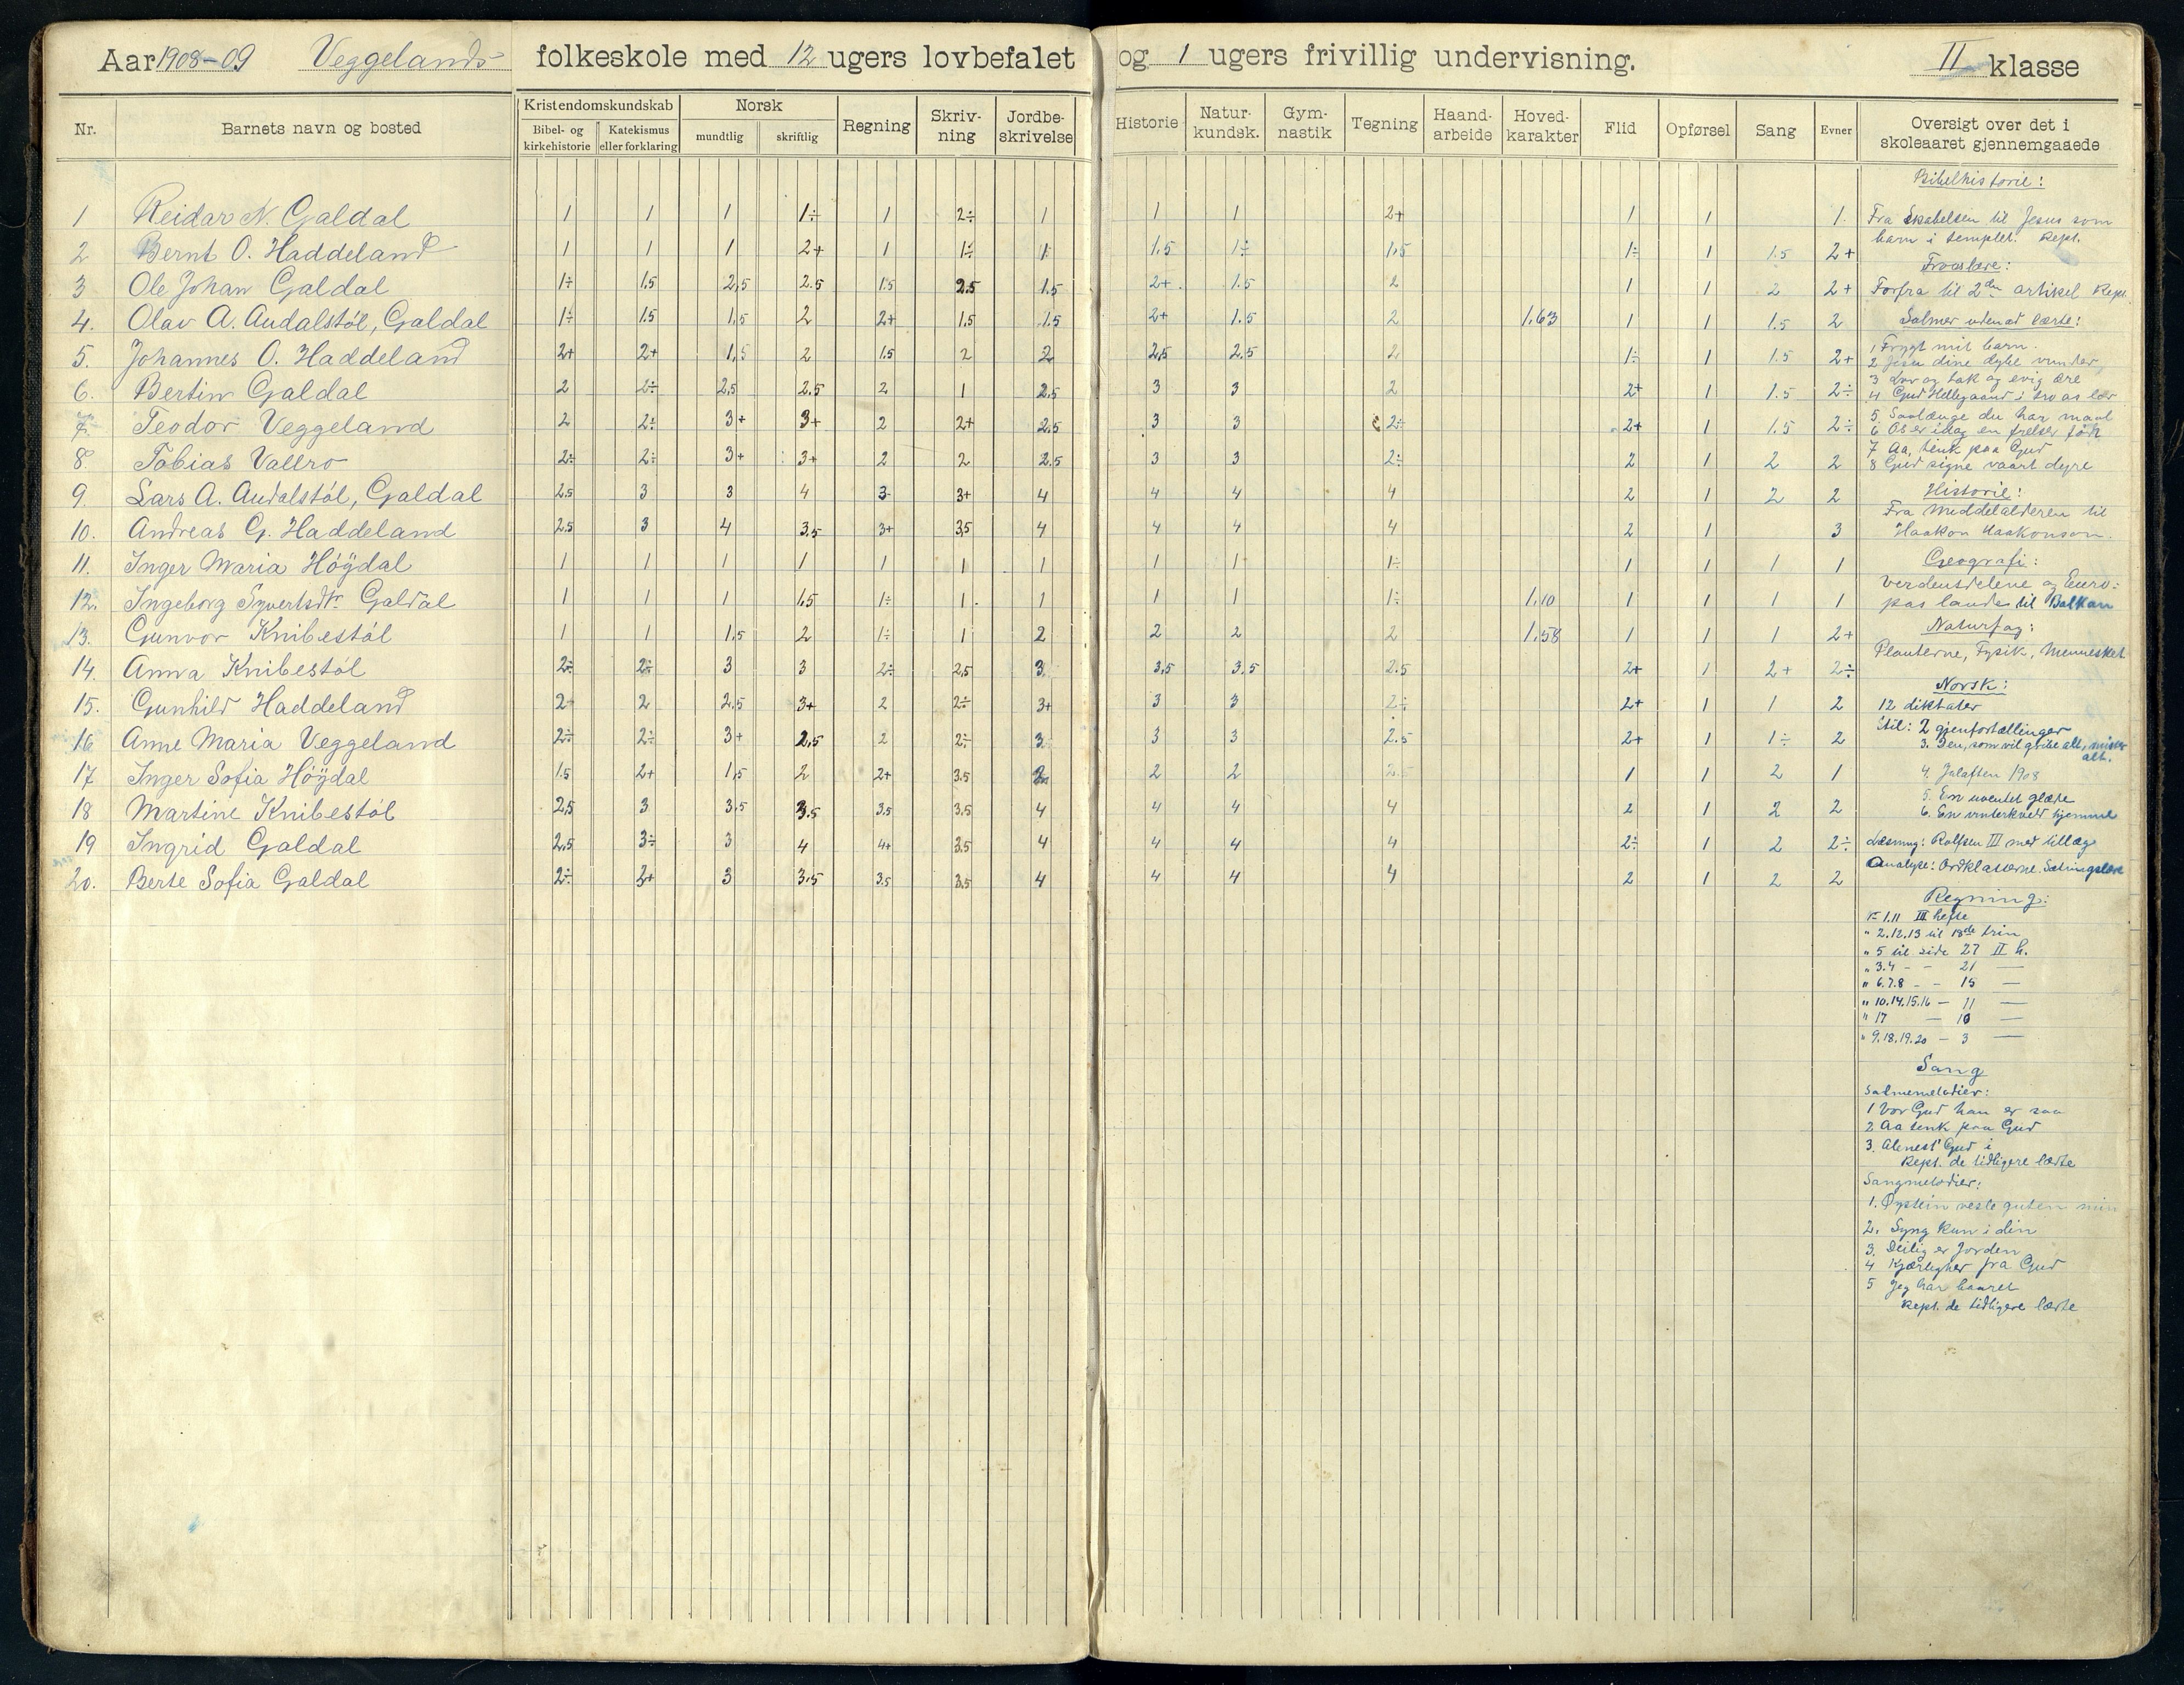 Aar 1908-09 Veggelands folkeskole med 12 ugers lovbefalet og 1 ugers frivillig undervisning. II klasse
Nr. Barnets navn og bosted Kristendomskundskab Bibel- og kirkehistorie Katekismus eller forklaring Norsk mundtlig skriftlig Regning Skriv-ning Jordbe-skrivelse Historie Natur-kundsk. Gym-nastik Tegning Haand-arbeide Hoved-karakter Flid Opførsel Sang Evner Oversigt over det i skoleaaret gjennemgaaede
1 Reidar N. Galdal 1 1 1 1÷ 1 2÷ 1 1 1 2+ 1 1 1.
2 Bernt O. Haddeland 1 1 1 2+ 1 1÷ 1 1,5 1÷ 1,5 1÷ 1 1.5 2+
3 Ole Johan Galdal 1÷ 1.5 2,5 2.5 1.5 2.5 1.5 2+ 1.5 2 1 1 2 2+
4. Olav A. Audalstöl, Galdal 1÷ 1.5 1,5 2 2+ 1.5 1.5 2+ 1.5 2 1,63 1 1 1.5 2
5. Johannes O. Haddeland 2+ 2+ 1,5 2 1.5 2 2 2,5 2.5 2 1÷ 1 1.5 2+
6. Bertin Galdal 2 2÷ 2,5 2.5 2 1 2.5 3 3 2 2+ 1 1.5 2÷
7. Teodor Veggeland 2 2÷ 3+ 3+ 2 2+ 2.5 3 3 2÷ 2+ 1 1.5 2÷
8. Tobias Vallro 2÷ 2÷ 3+ 3+ 2 2 2.5 3 3 2÷ 2 1 2 2
9. Lars A. Audalstöl, Galdal 2.5 3 3 4 3 3+ 4 4 4 4 2 1 2 2
10. Andreas G. Haddeland 2.5 3 4 3.5 3+ 3,5 4 4 4 4 2 1 3
11. Inger Maria Höydal 1 1 1 1 1 1 1 1 1 1÷ 1 1 1 1
12. Ingeborg Syvertsdtr. Galdal 1 1 1 1,5 1÷ 1 1 1 1 1÷ 1,10 1 1 1 1
13. Gunvor Knibestöl 1 1 1,5 2 1÷ 1 2 2 2 2 1,58 1 1 1 2+
14. Anna Knibestöl 2÷ 2÷ 3 3 2÷ 2,5 3 3,5 3.5 2.5 2+ 1 2+ 2÷
15. Gunhild Haddeland 2 2 2,5 3+ 2 2÷ 3+ 3 3 2÷ 2+ 1 1 2
16 Anne Maria Veggeland 2÷ 2÷ 3+ 2,5 2 2÷ 3 3 3 2.5 2+ 1 1÷ 2
17 Inger Sofia Höydal 1.5 2+ 1,5 2 2+ 3.5 2 2 2 2.5 1 1 2 1
18 Martine Knibestöl 2,5 3 3,5 3.5 3.5 3.5 4 4 4 4 2 1 2 2
19 Ingrid Galdal 2,5 3÷ 3 4 4+ 3.5 4 4 4 4 2÷ 1 2 2÷
20. Berte Sofia Galdal 2÷ 3+ 3 3.5 3.5 3.5 4 4 4 4 2 1 2 2
Bibelhistorie:
Fra Skabelsen til Jesus som
barn i templet. Rept.
Troslære:
Forfra til 2den artikel Rept.
Salmer udenad lærte:
1 Frygt mit barn
2 Jesu dine dybe vunder
3 Lov og tak og evig ære
4 Gud Helligaand i tro os lær
5 Saalænge du har maal
6 Os er idag en frelser föd
7 Aa, tenk paa Gud
8 Gud signe vaart dyre
Historie:
Fra Middelalderen til
Haakon Haakonson.
Geografi:
Verdensdelene og Euro-
pas lande til Balkan
Naturfag:
Planterne, Fysik, Mennesket
Norsk:
12 diktater
Stil: 2 gjenfortællinger
3. Den, som vil gribe alt, mister
alt.
4. Julaften 1908
5. En uventet glæde
6. En vinterkveld hjemme
Læsning: Rolfsen III med tillæg
Analyse: Ordklasserne. Sætningslære
Regning:
Nr 1.11 III hefte
" 2.12.13 til 18de trin
" 5 til side 27 II h.
" 3.4 - - 21 —
" 6.7.8 - - 15 —
" 10.14.15.16 — 11 —
" 17 — 10 —
" 9.18.19.20 — 3 —
Sang
Salmemelodier:
1 Vor Gud han er saa
2 Aa tenk paa Gud
3. Alenest Gud i
Rept. de tidligere lærte
Sangmelodier:
1. Øystein vesle guten min
2. Syng kun i din
3. Deilig er Jorden
4 Kjærlighet fra Gud
5 Jeg har baaret
Rept. de tidligere lærte